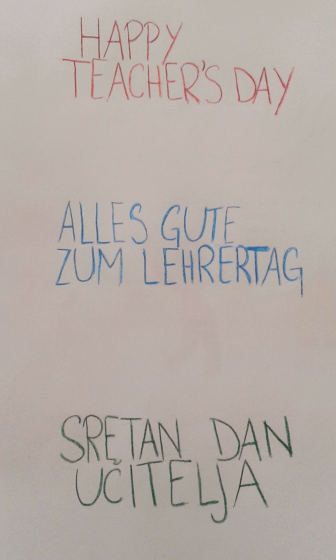 HAPPY
TEACHER'S DAY
ALLES GUTE
ZUM LEHRERTAG
SRETAN DAN
UČITELJA